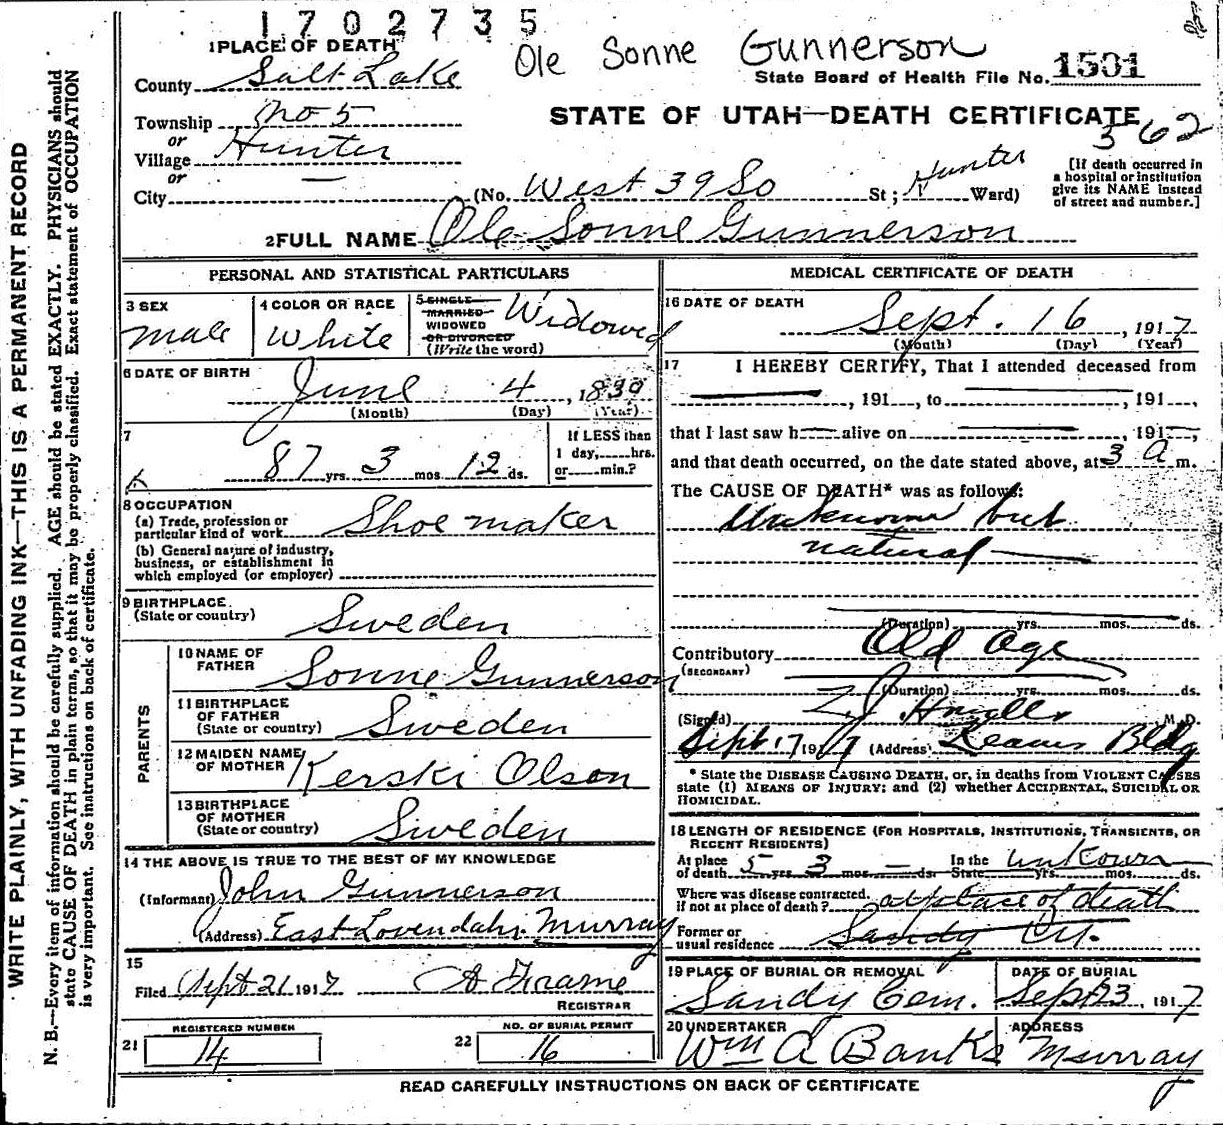 1702735
Ole Sonne Gunnerson
1 PLACE OF DEATH
County Salt Lake
State Board of Health File No. 1501
Township No 5
STATE OF UTAH—DEATH CERTIFICATE
362
or
Village Hunter
or
City — (No. West 39 So St; Hunter Ward)
[If death occurred in
a hospital or institution
give its NAME instead
of street and number.]
2 FULL NAME Ole Sonne Gunnerson
PERSONAL AND STATISTICAL PARTICULARS
3 SEX
male
4 COLOR OR RACE
White
5 SINGLE
MARRIED
WIDOWED
OR DIVORCED
(Write the word)
Widowed
6 DATE OF BIRTH
June 4, 1839
(Month) (Day) (Year)
7
87 yrs. 3 mos. 12 ds.
If LESS than
1 day,......hrs.
or......min.?
8 OCCUPATION
(a) Trade, profession or
particular kind of work Shoe maker
(b) General nature of industry,
business, or establishment in
which employed (or employer)
9 BIRTHPLACE
(State or country) Sweden
PARENTS
10 NAME OF
FATHER Sonne Gunnerson
11 BIRTHPLACE
OF FATHER
(State or country) Sweden
12 MAIDEN NAME
OF MOTHER Kerski Olson
13 BIRTHPLACE
OF MOTHER
(State or country) Sweden
14 THE ABOVE IS TRUE TO THE BEST OF MY KNOWLEDGE
(Informant) John Gunnerson
(Address) East Lovendahl Murray
15
Filed Sept 21 1917 A Frame
REGISTRAR
REGISTERED NUMBER
21 14
NO. OF BURIAL PERMIT
22 16
MEDICAL CERTIFICATE OF DEATH
16 DATE OF DEATH
Sept. 16, 1917
(Month) (Day) (Year)
17 I HEREBY CERTIFY, That I attended deceased from
, 191 , to , 191 ,
that I last saw h alive on , 191 ,
and that death occurred, on the date stated above, at 3 a m.
The CAUSE OF DEATH* was as follows:
Unknown but
natural
(Duration) yrs. mos. ds.
Contributory Old age
(SECONDARY)
(Duration) yrs. mos. ds.
(Signed) M. D.
Sept 17 1917 (Address) Bldg
* State the DISEASE CAUSING DEATH, or, in deaths from VIOLENT CAUSES
state (1) MEANS OF INJURY; and (2) whether ACCIDENTAL, SUICIDAL OR
HOMICIDAL.
18 LENGTH OF RESIDENCE (FOR HOSPITALS, INSTITUTIONS, TRANSIENTS, OR
RECENT RESIDENTS)
At place
of death 5 yrs. 3 mos. — ds. In the
State unkown yrs. mos. ds.
Where was disease contracted,
if not at place of death? at place of death
Former or
usual residence Sandy
19 PLACE OF BURIAL OR REMOVAL
Sandy Cem.
DATE OF BURIAL
Sept 23, 1917
20 UNDERTAKER
Wm A Banks
ADDRESS
Murray
READ CAREFULLY INSTRUCTIONS ON BACK OF CERTIFICATE
WRITE PLAINLY, WITH UNFADING INK—THIS IS A PERMANENT RECORD
N. B.—Every item of information should be carefully supplied. AGE should be stated EXACTLY. PHYSICIANS should
state CAUSE OF DEATH in plain terms, so that it may be properly classified. Exact statement of OCCUPATION
is very important. See instructions on back of certificate.